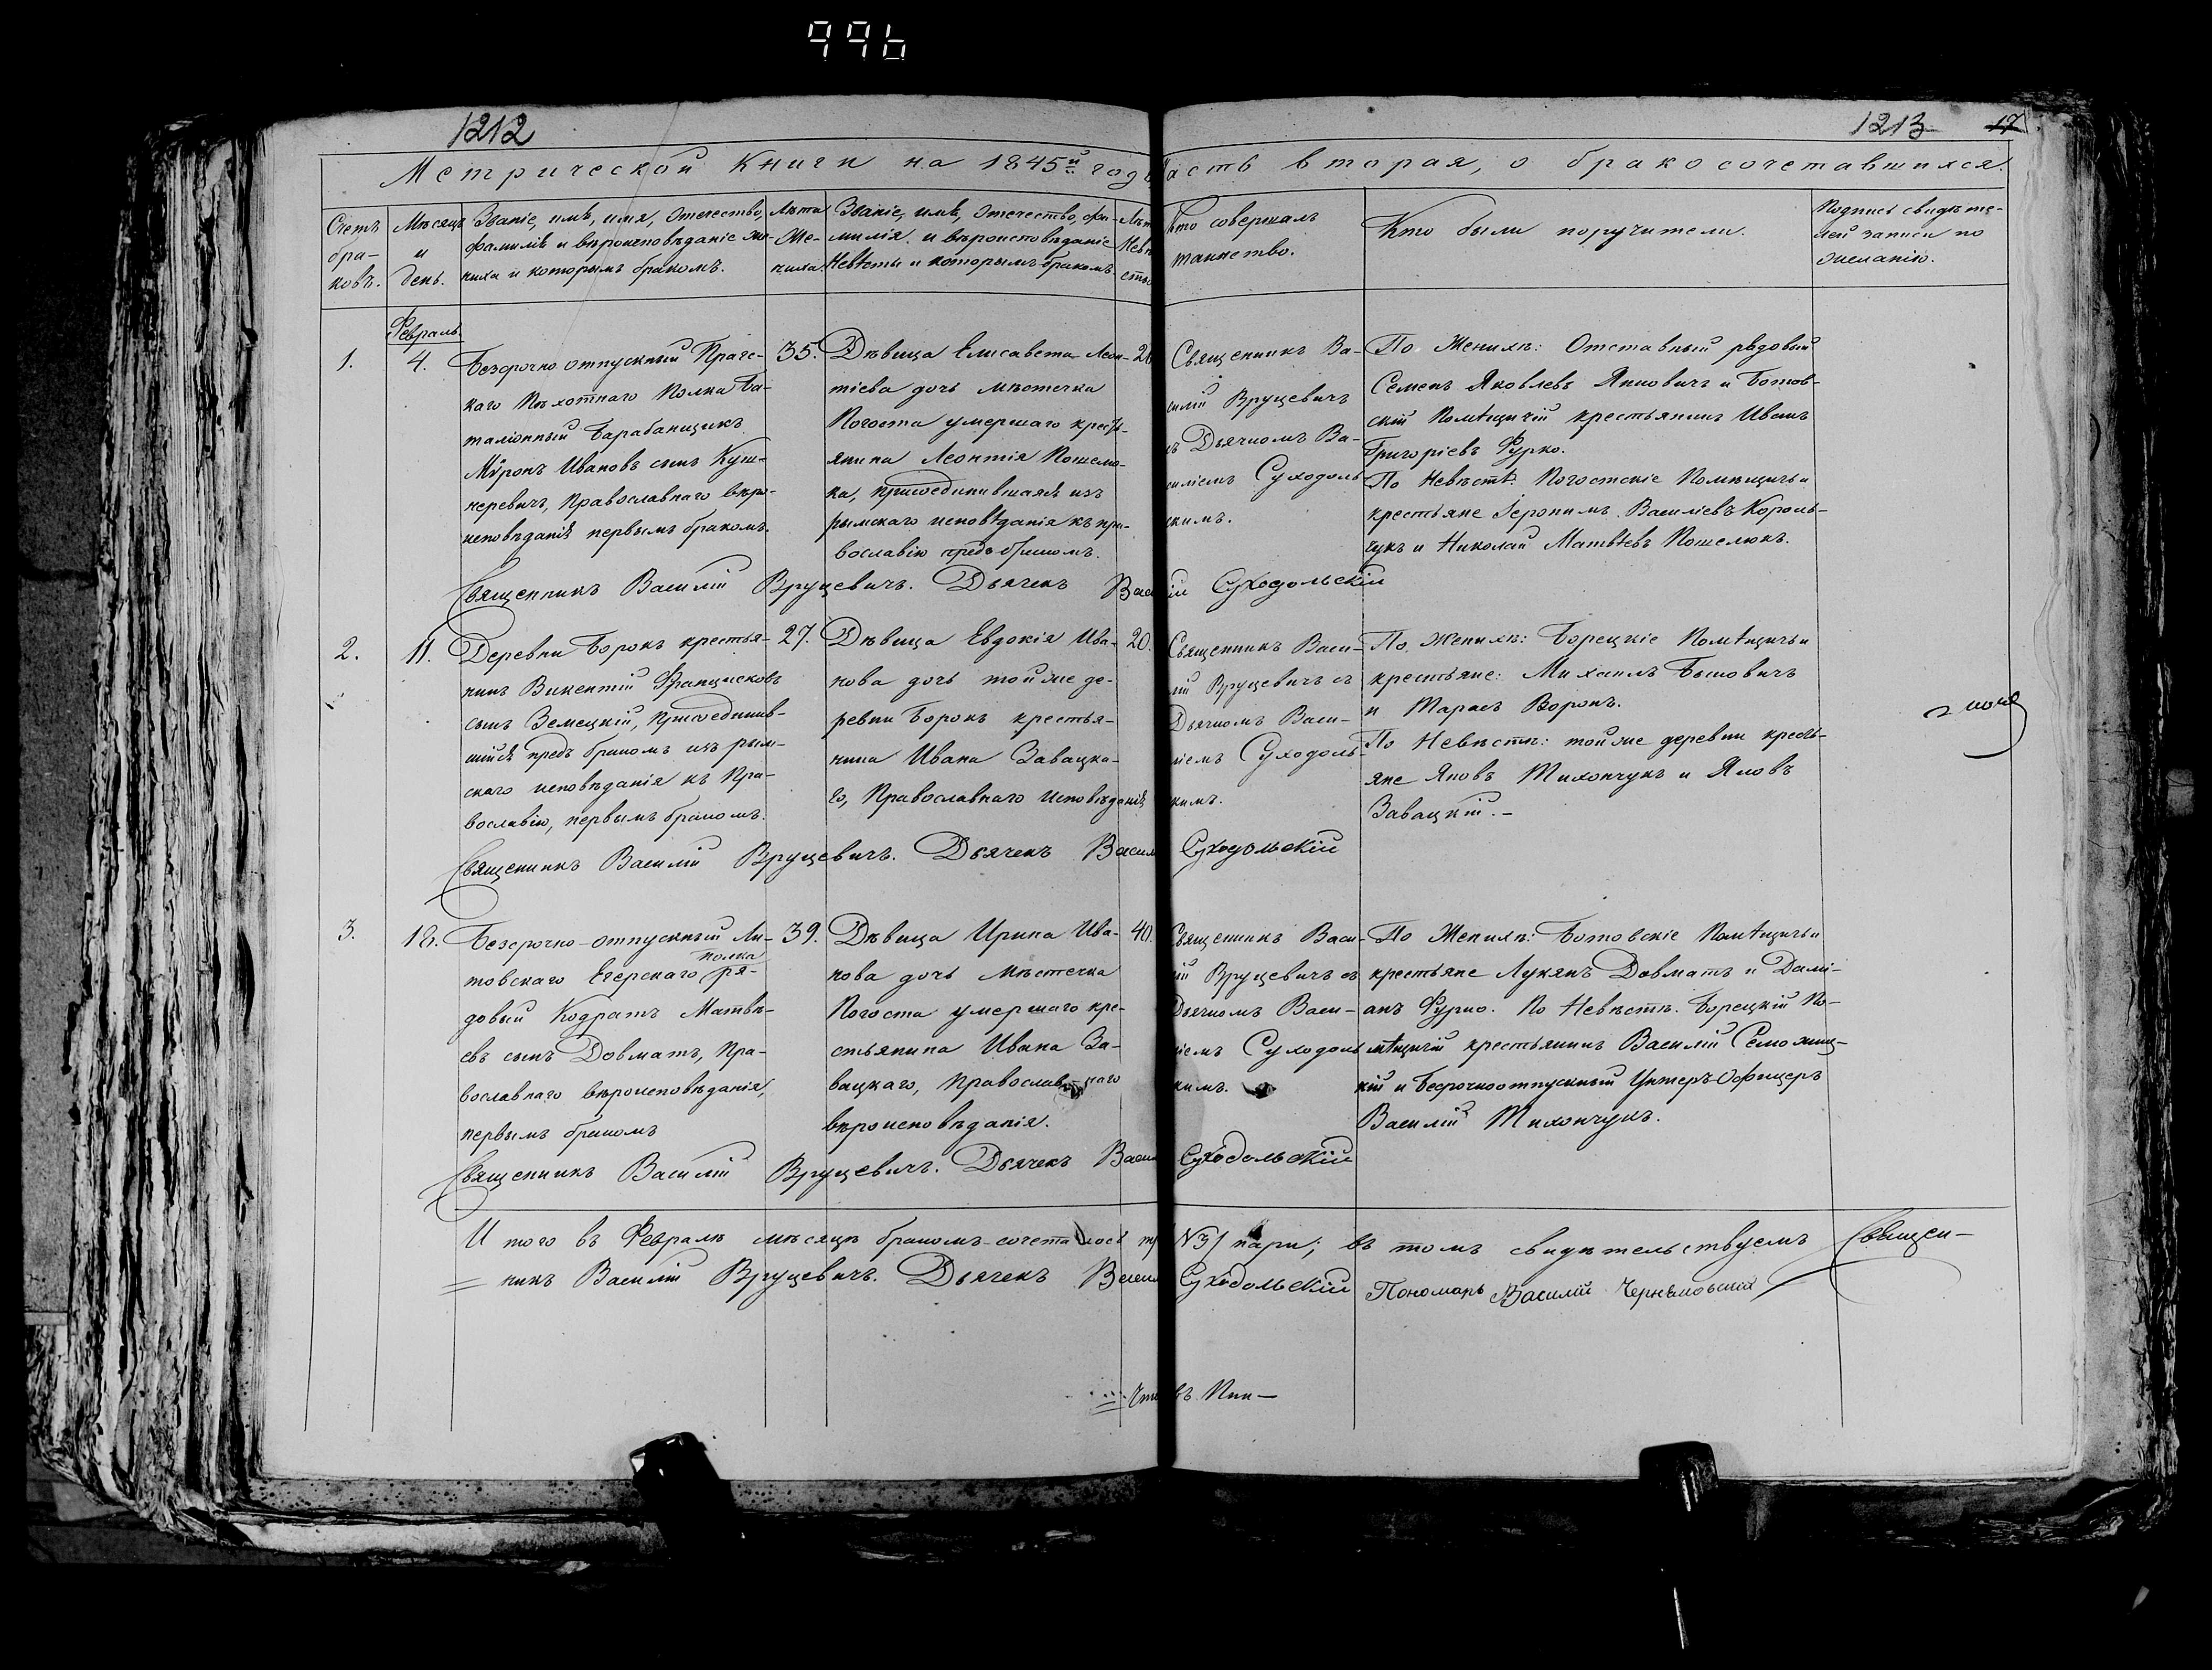 996
1212
1213 17
Метрической Книги на 1845й годъ
асть вторая, о бракосочетавшихся.
Счетъ бра- ковъ.
Мѣсяцъ и день.
Званіе, имѣ, имя, Отечество,
фамилія и вѣроисповѣданіе же-
ниха и которымъ бракомъ.
Лѣта Же- ниха
Званіе, имѣ, Отечество, фа-
милія и вѣроисповѣданіе
Невѣсты и которымъ бракомъ
Лѣт Невѣ есты
Кто совершалъ
таинство.
Кто были поручители.
Подпись свидѣте-
лей записи по
желанію.
Февраль
1.
4.
Безсрочно отпускный Праг-
скаго Пѣхотнаго Полка Ба-
таліонный Барабанщикъ
Мѵронъ Ивановъ сынъ Куш-
неревичъ, Православнаго вѣро-
исповѣданія первымъ бракомъ.
35.
Дѣвица Елисавета Леон-
тіева дочь мѣстечка
Погоста умершаго кресть-
янина Леонтія Кошелю-
ка, присоединившаяся изъ
рымскаго исповѣданія къ пра-
вославію предъ бракомъ.
20
Священникъ Ва-
силій Вруцевичъ
съ Дьячкомъ Ва-
силіемъ Суходоль
скимъ.
По Женихѣ: Отставный рядовый
Семенъ Яковлевъ Янковичъ и Ботов-
скій Помѣщичій крестьянинъ Иванъ
Григоріевъ Фурко.
По Невѣстѣ. Погостскіе Помѣщичьи
крестьяне Іеронимъ Василіевъ Король-
чукъ и Николай Матвѣевъ Кошелюкъ.
Священникъ Василій Вруцевичъ. Дьячекъ Василій Суходольскій
2.
11.
Деревни Борокъ крестья-
нинъ Викентій Францисковъ
сынъ Земецкій, присоединив-
шійся предъ бракомъ изъ рым-
скаго исповѣданія къ Пра-
вославію, первымъ бракомъ.
27.
Дѣвица Евдокія Ива-
нова дочь той же де-
ревни Борокъ крестья-
нина Ивана Завацка-
го, Православнаго исповѣданія
20.
Священникъ Васи-
лій Вруцевичъ съ
Дьячкомъ Васи-
ліемъ Суходоль-
скимъ.
По Женихѣ: Борецкіе Помѣщичьи
крестьяне: Михаилъ Быковичъ
и Тарасъ Воронъ.
По Невѣстѣ: той же деревни кресть-
яне Яковъ Тихончукъ и Яковъ
Завацкій.-
Священникъ Василій Вруцевичъ. Дьячекъ Васил Суходольскій
3.
18.
Безсрочно-отпускный Ли-
товскаго Егерскаго полка ря-
довый Кодратъ Матвѣ-
евъ сынъ Довматъ, Пра-
вославнаго вѣроисповѣданія,
первымъ бракомъ
39.
Дѣвица Ирина Ива-
нова дочь Мѣстечка
Погоста умершаго кре-
стьянина Ивана За-
вацкаго, Православнаго
вѣроисповѣданія.
40.
Священникъ Васи-
лій Вруцевичъ съ
Дьячкомъ Васи-
ліемъ Суходоль
скимъ.
По Женихѣ: Ботовскіе Помѣщичьи
крестьяне Лукянъ Довматъ и Дамі-
анъ Фурко. По Невѣстѣ. Борецкій По-
мѣщичій крестьянинъ Василій
и Безсрочноотпускный Унтеръ-Офицеръ
Василій Тихончукъ.
Священникъ Василій Вруцевичъ. Дьячекъ Васил Суходольскій
И того въ Февралѣ мѣсяцѣ бракомъ сочеталось тр №3/ пари; въ томъ свидѣтельствуемъ Священ-
никъ Василій Вруцевичъ. Дьячекъ Васил Суходольскій Пономарь Василій